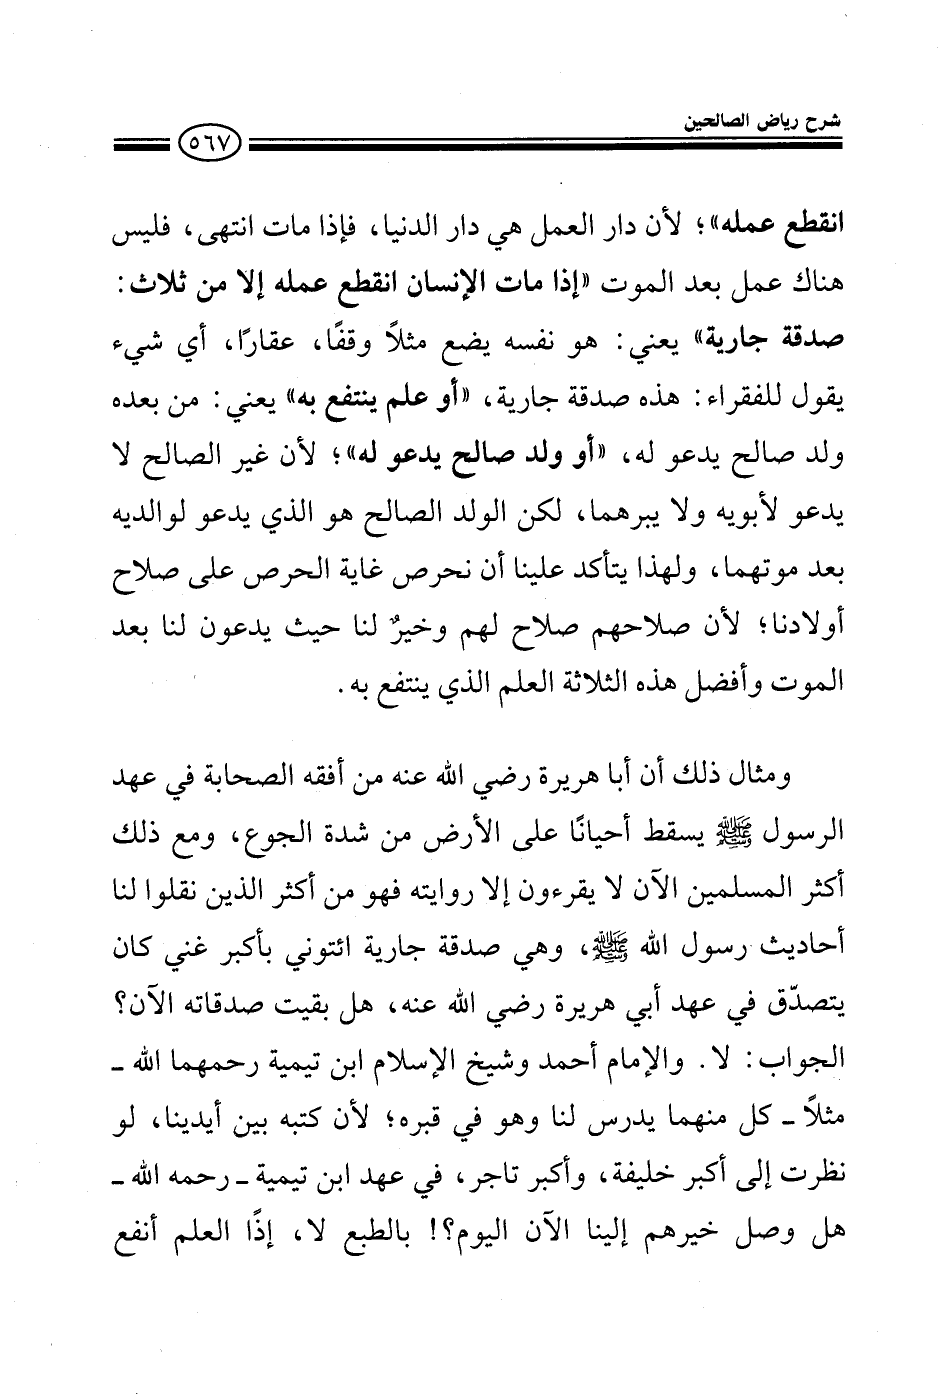 شرح رياض الصالحين
٥٦٧
انقطع عمله»؛ لأن دار العمل هي دار الدنيا، فإذا مات انتهى، فليس
هناك عمل بعد الموت «إذا مات الإنسان انقطع عمله إلا من ثلاث:
صدقة جارية» يعني: هو نفسه يضع مثلاً وقفًا، عقارًا، أي شيء
يقول للفقراء: هذه صدقة جارية، «أو علم ينتفع به» يعني: من بعده
ولد صالح يدعو له، «أو ولد صالح يدعو له»؛ لأن غير الصالح لا
يدعو لأبويه ولا يبرهما، لكن الولد الصالح هو الذي يدعو لوالديه
بعد موتهما، ولهذا يتأكد علينا أن نحرص غاية الحرص على صلاح
أولادنا؛ لأن صلاحهم صلاح لهم وخيرٌ لنا حيث يدعون لنا بعد
الموت وأفضل هذه الثلاثة العلم الذي ينتفع به.
ومثال ذلك أن أبا هريرة رضي الله عنه من أفقه الصحابة في عهد
الرسول ﷺ يسقط أحيانًا على الأرض من شدة الجوع، ومع ذلك
أكثر المسلمين الآن لا يقرءون إلا روايته فهو من أكثر الذين نقلوا لنا
أحاديث رسول الله ﷺ، وهي صدقة جارية ائتوني بأكبر غني كان
يتصدّق في عهد أبي هريرة رضي الله عنه، هل بقيت صدقاته الآن؟
الجواب: لا. والإمام أحمد وشيخ الإسلام ابن تيمية رحمهما الله ـ
مثلاً ـ كل منهما يدرس لنا وهو في قبره؛ لأن كتبه بين أيدينا، لو
نظرت إلى أكبر خليفة، وأكبر تاجر، في عهد ابن تيمية ـ رحمه الله ـ
هل وصل خيرهم إلينا الآن اليوم؟! بالطبع لا، إذًا العلم أنفع